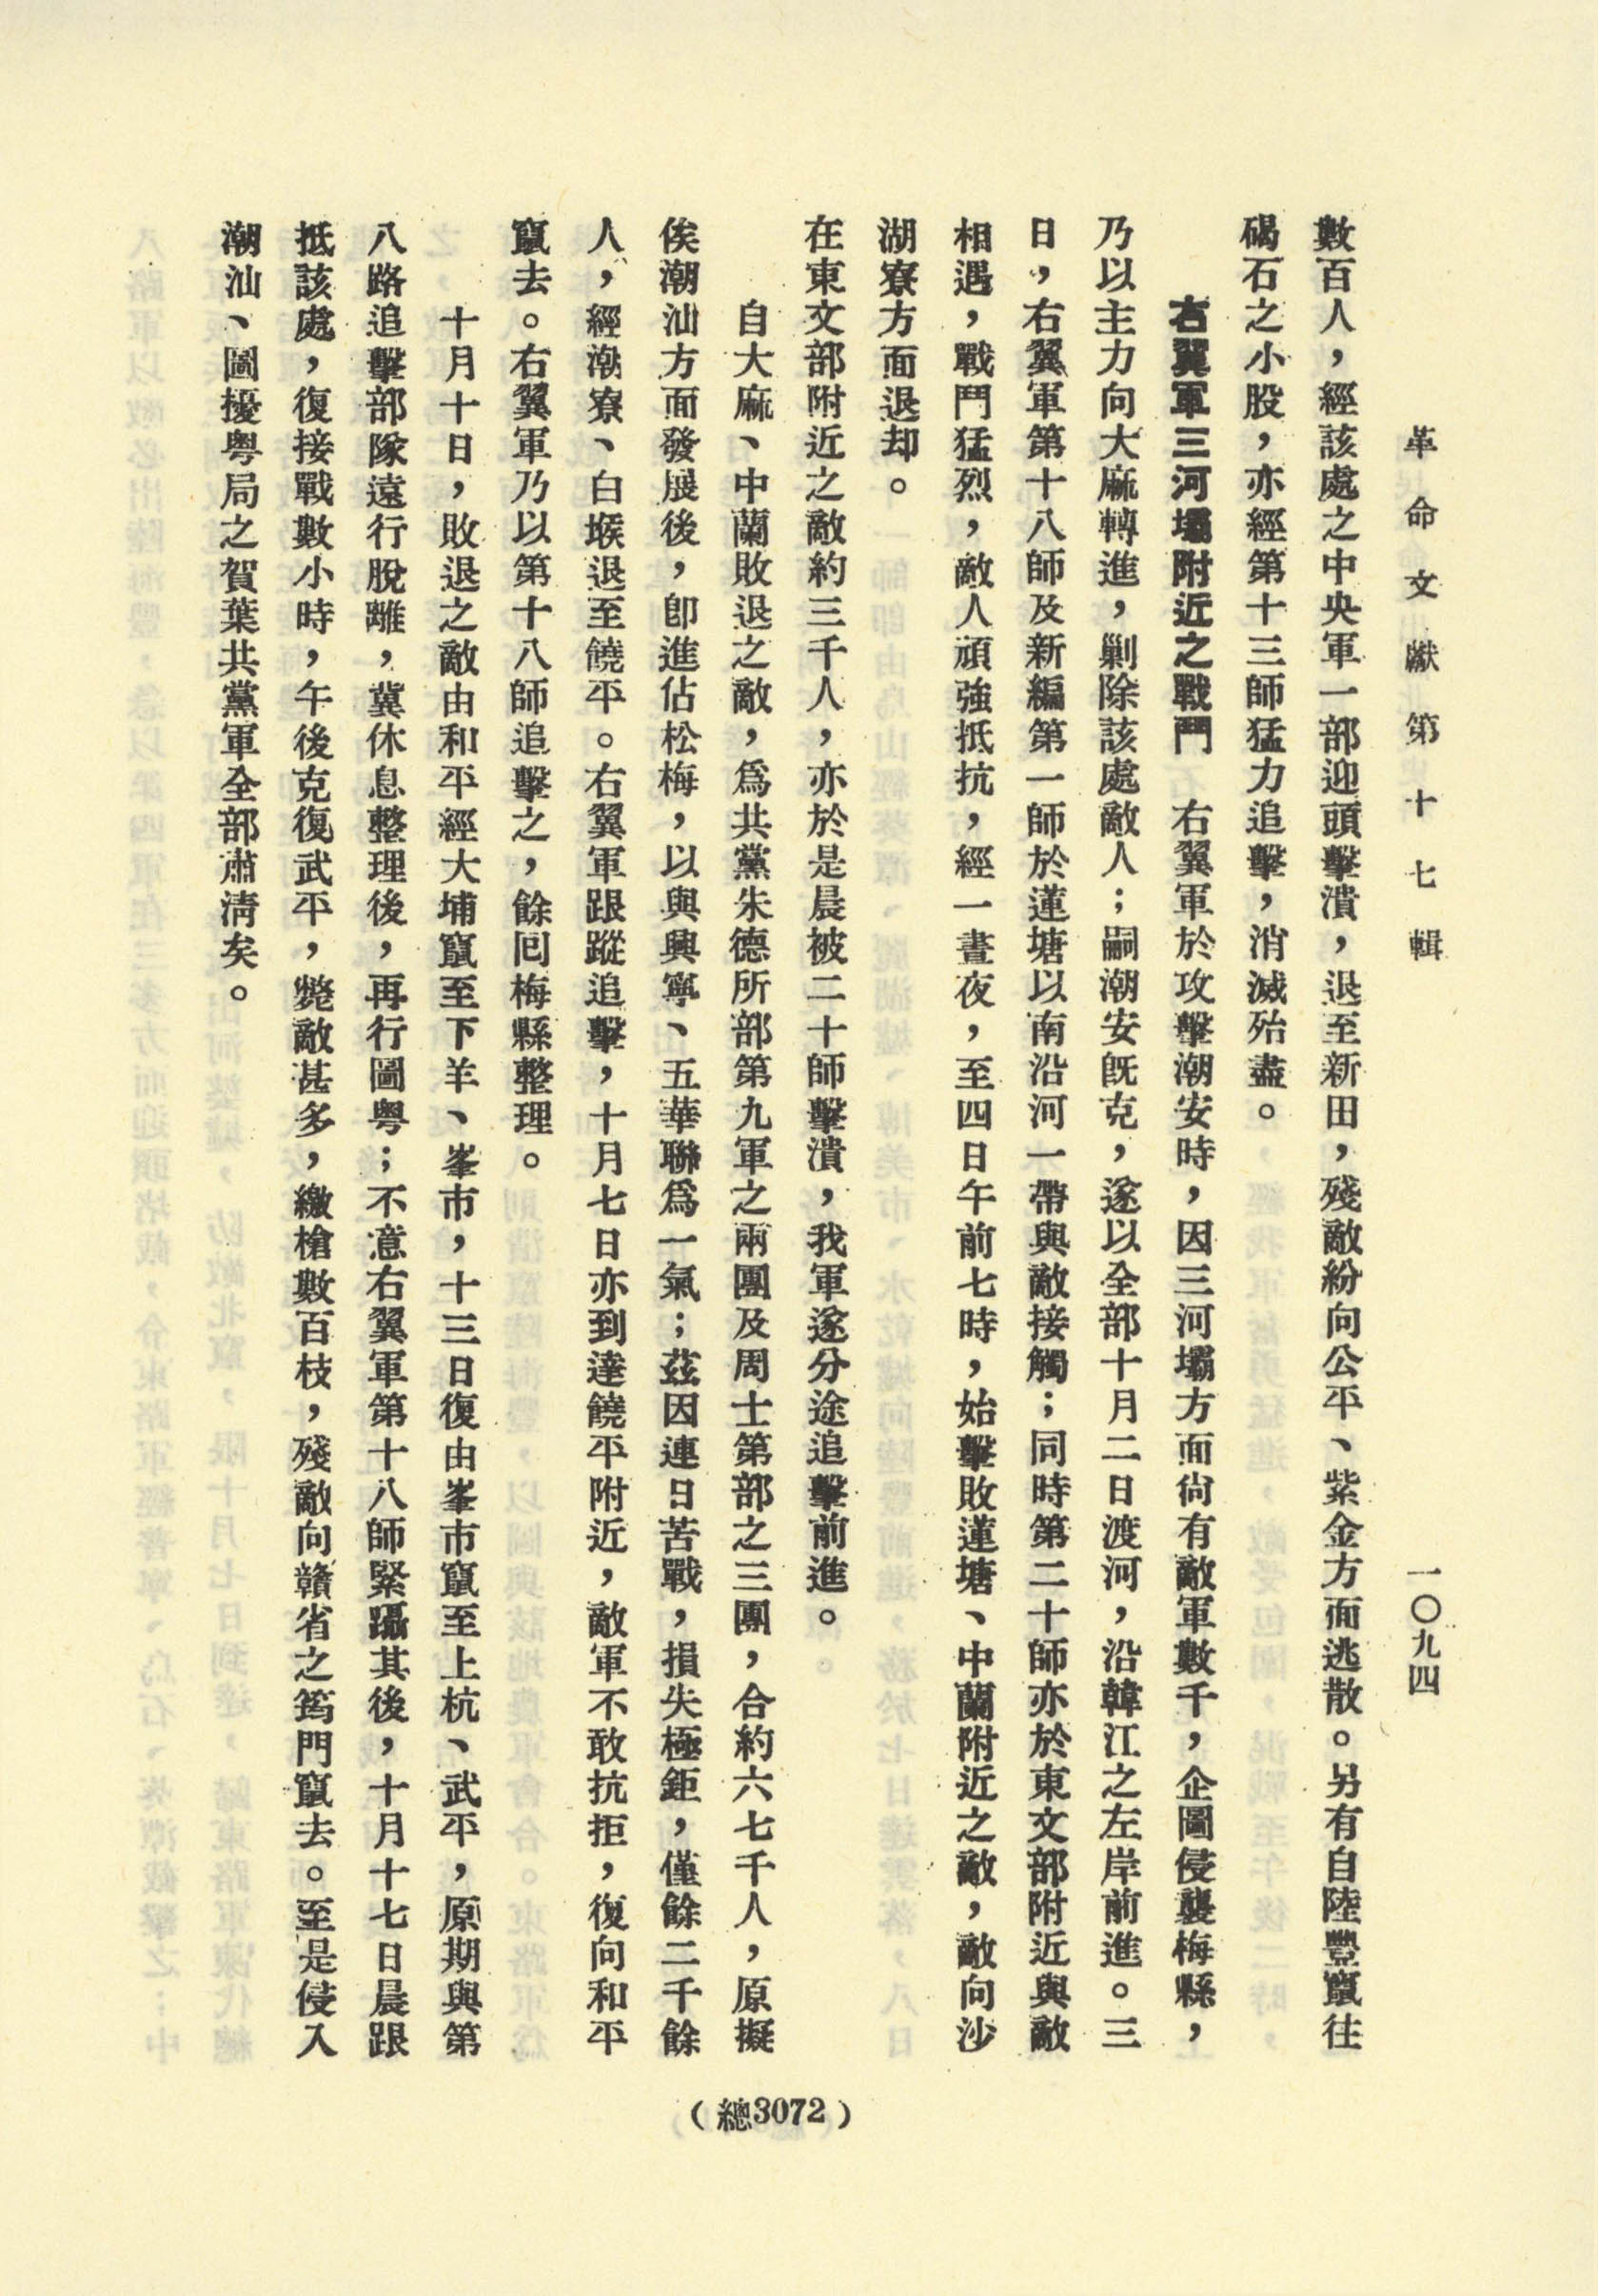 革命文獻第十七輯
一〇九四
數百人，經該處之中央軍一部迎頭擊潰，退至新田，殘敵紛向公平、紫金方面逃散。另有自陸豐竄往
碣石之小股，亦經第十三師猛力追擊，消滅殆盡。
右翼軍三河壩附近之戰鬥　右翼軍於攻擊潮安時，因三河壩方面尙有敵軍數千，企圖侵襲梅縣，
乃以主力向大麻轉進，剿除該處敵人；嗣潮安旣克，遂以全部十月二日渡河，沿韓江之左岸前進。三
日，右翼軍第十八師及新編第一師於蓮塘以南沿河一帶與敵接觸；同時第二十師亦於東文部附近與敵
相遇，戰鬥猛烈，敵人頑強抵抗，經一晝夜，至四日午前七時，始擊敗蓮塘、中蘭附近之敵，敵向沙
湖寮方面退却。
在東文部附近之敵約三千人，亦於是晨被二十師擊潰，我軍遂分途追擊前進。
自大麻、中蘭敗退之敵，爲共黨朱德所部第九軍之兩團及周士第部之三團，合約六七千人，原擬
俟潮汕方面發展後，卽進佔松梅，以與興寧、五華聯爲一氣；茲因連日苦戰，損失極鉅，僅餘二千餘
人，經潮寮、白堠退至饒平。右翼軍跟蹤追擊，十月七日亦到達饒平附近，敵軍不敢抗拒，復向和平
竄去。右翼軍乃以第十八師追擊之，餘回梅縣整理。
十月十日，敗退之敵由和平經大埔竄至下羊、峯市，十三日復由峯市竄至上杭、武平，原期與第
八路追擊部隊遠行脫離，冀休息整理後，再行圖粤；不意右翼軍第十八師緊躡其後，十月十七日晨跟
抵該處，復接戰數小時，午後克復武平，斃敵甚多，繳槍數百枝，殘敵向贛省之筠門竄去。至是侵入
潮汕、圖擾粤局之賀葉共黨軍全部肅淸矣。
（總3072）